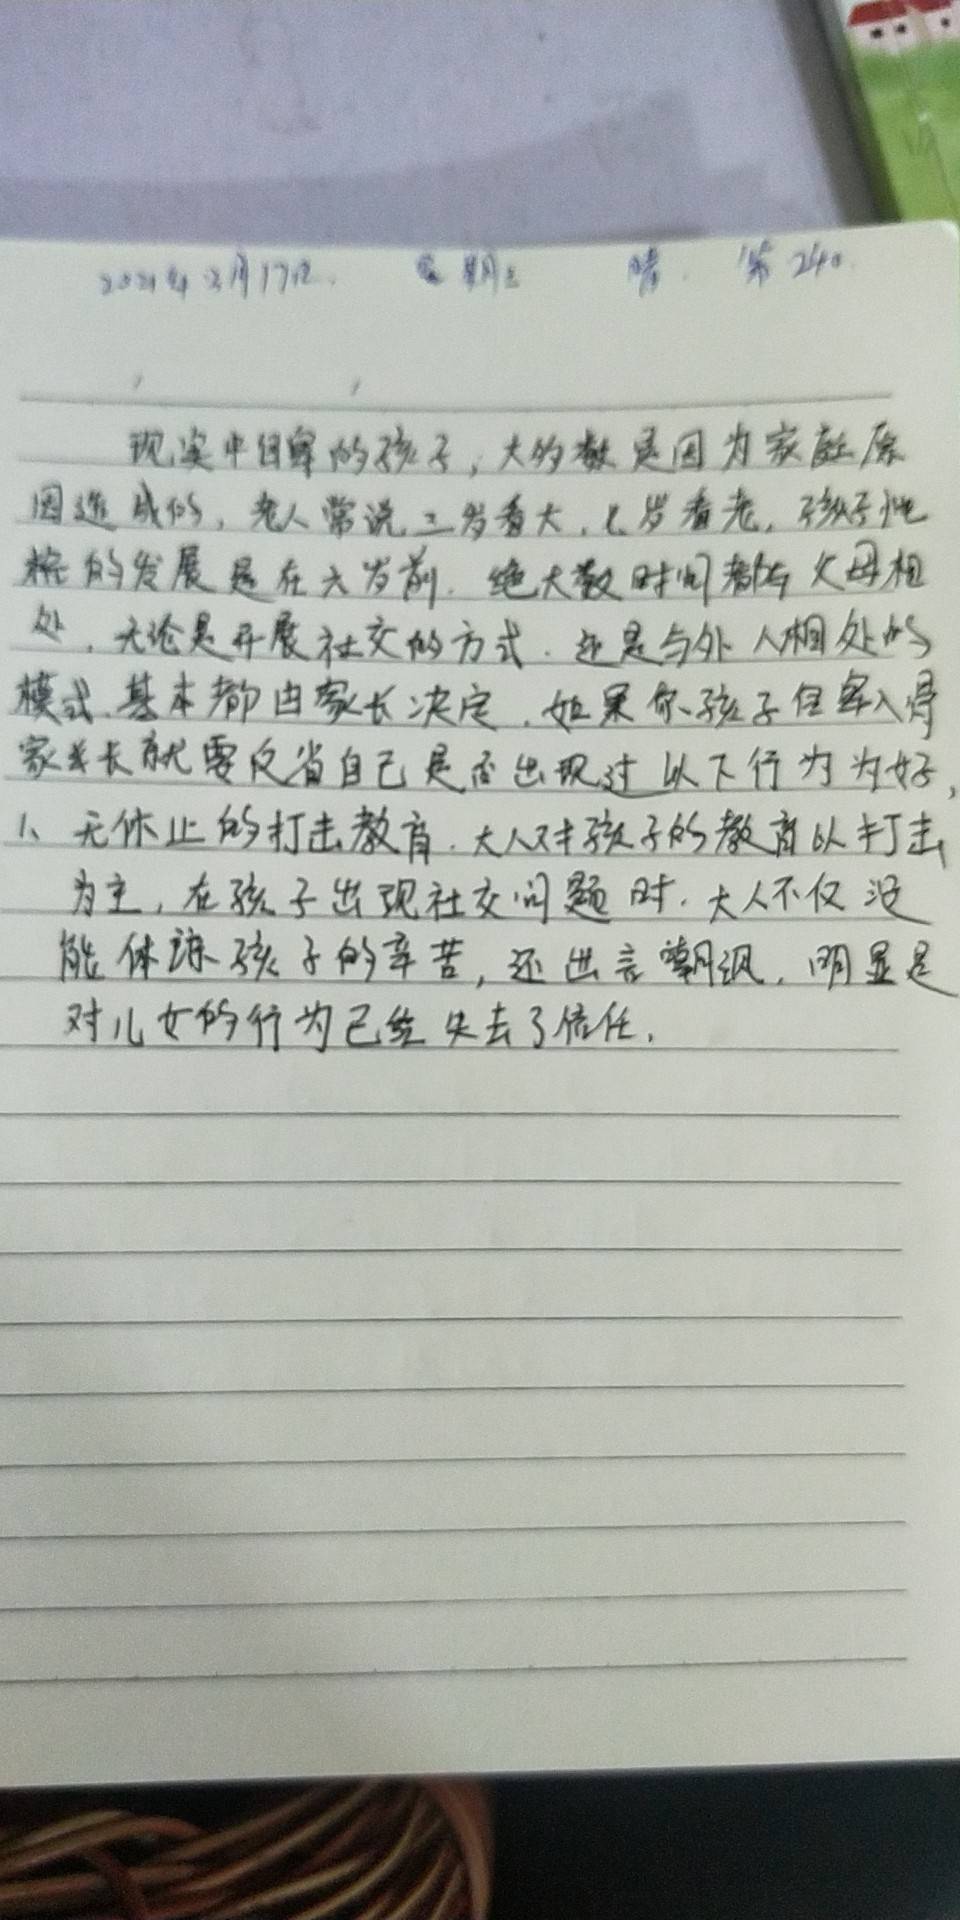 2021年3月17日. 星期三 晴. 第240.
现实中自卑的孩子,大多数是因为家庭原
因造成的,老人常说三岁看大,七岁看老,孩子性
格的发展是在六岁前.绝大数时间都与父母相
处,无论是开展社交的方式.还是与外人相处的
模式.基本都由家长决定,如果你孩子自卑入骨
家长就要反省自己是否出现过以下行为为好,
1、无休止的打击教育.大人对孩子的教育以打击
为主,在孩子出现社交问题时.大人不仅没
能体谅孩子的辛苦,还出言嘲讽,明显是
对儿女的行为已经失去了信任.